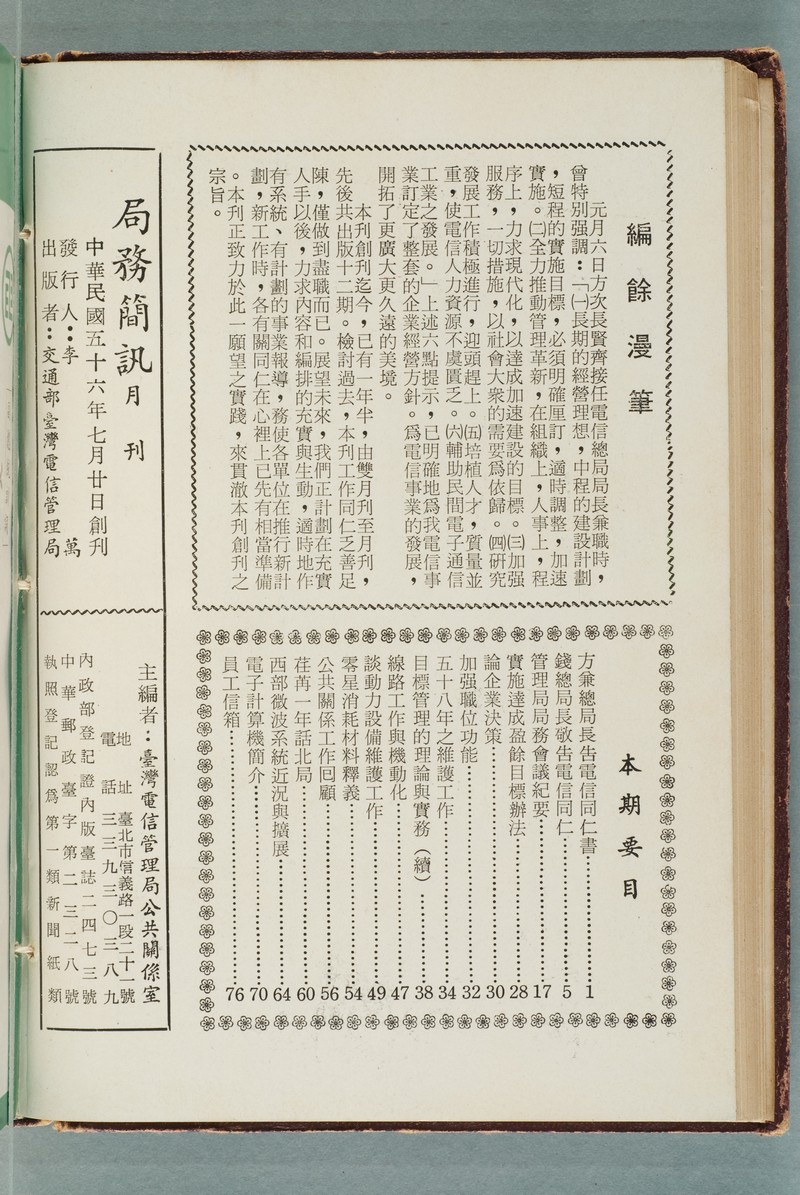 編餘漫筆
元月六日方次長賢齊接任電信總局局長兼職時，
曾特別强調：「㈠長期的經營理想，中程的建設計劃
，短程的實施目標，必須明確厘訂，適時調整，加速
實施。㈡全力推動管理革新，在組織上，人事上，程
序上，力求現代化，以達成加速建設的目標。㈢加强
服務，一切措施，以社會大衆的需要爲依歸。㈣研究
發展工作積極進行，迎頭趕上。㈤培植人才，質量並
重，使電信人力資源不虞匱乏。㈥輔助民間電子通信
工業之發展。」上述六點提示，已明確地爲我電信事
業訂定了整套的企業經營方針。爲電信事業的發展，
開拓了更廣大更久遠的美境。
本刋創刋迄今，已有一年半，由雙月刋至月刋，
先後共出版十二期。檢討過去，本刋工作同仁乏善足
陳，僅做到盡職而已。展望未來，我們正計劃在充實
人手以後，力求內容和編排的充實與生動，適時地作
有系統、有計劃的事業報導，務使各單位在推行新計
劃，新工作時，各有關同仁在心裡上已先有相當準備
。本刋正致力於此一願望之實踐，來貫澈本刋創刋之
宗旨。
本期要目
方兼總局長告電信同仁書……1
錢總局長敬告電信同仁……5
管理局局務會議紀要……17
實施達成盈餘目標辦法……28
論企業決策……30
加强職位功能……32
五十八年之維護工作……34
目標管理的理論與實務（續）……38
線路工作與機動化……47
談動力設備維護工作……49
零星消耗材料釋義……54
公共關係工作回顧……56
荏苒一年話北局……60
西部微波系統近況與擴展……64
電子計算機簡介……70
員工信箱……76
局務簡訊月刊
中華民國五十六年七月廿日創刊
發行人：李萬
出版者：交通部臺灣電信管理局
主編者：臺灣電信管理局公共關係室
地址 臺北市信義路一段二十一號
電話 三三九三〇三八九
內政部登記證內版臺誌二四七三號
中華郵政臺字第二三二八號
執照登記認爲第一類新聞紙類